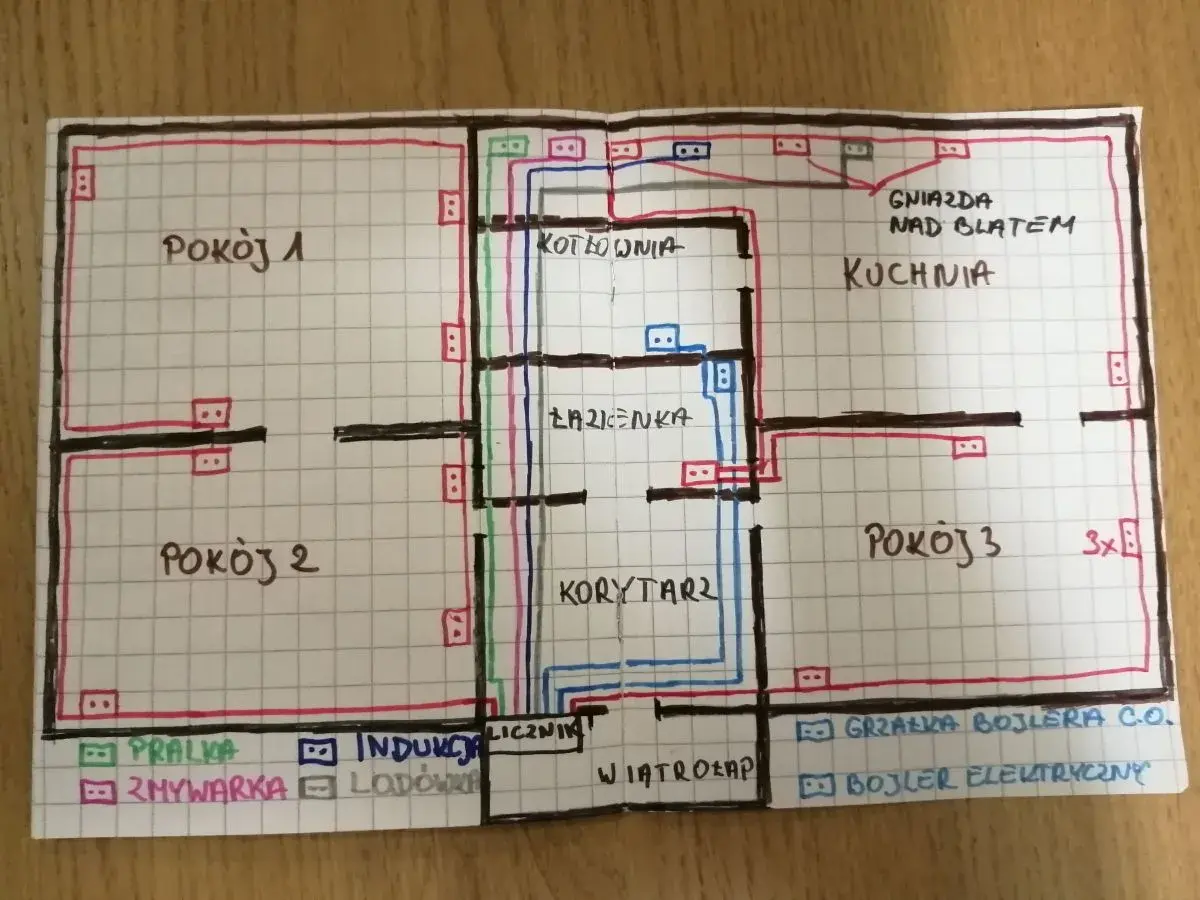 GNIAZDA
NAD BLATEM
POKÓJ 1
KOTŁOWNIA
KUCHNIA
ŁAZIENKA
POKÓJ 2
KORYTARZ
POKÓJ 3
3x
LICZNIK
WIATROŁAP
PRALKA
INDUKCJA
ZMYWARKA
LODÓWKA
GRZAŁKA BOJLERA C.O.
BOJLER ELEKTRYCZNY